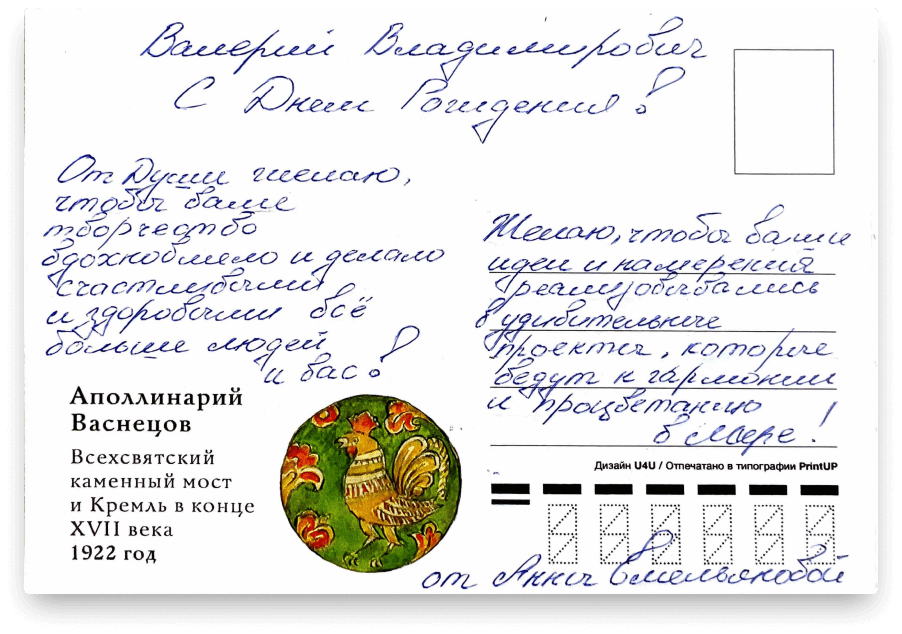 Валерий Владимирович
С Днем Рождения!
От Души желаю,
чтобы ваше
творчество
вдохновляло и делало
счастливыми
и здоровыми всё
больше людей
и вас!
Желаю, чтобы ваши
идеи и намерения
реализовывались
в удивительные
проекты, которые
ведут к гармонии
и процветанию
в мире!
Аполлинарий
Васнецов
Всехсвятский
каменный мост
и Кремль в конце
XVII века
1922 год
Дизайн U4U / Отпечатано в типографии PrintUP
от Анны Емельяновой